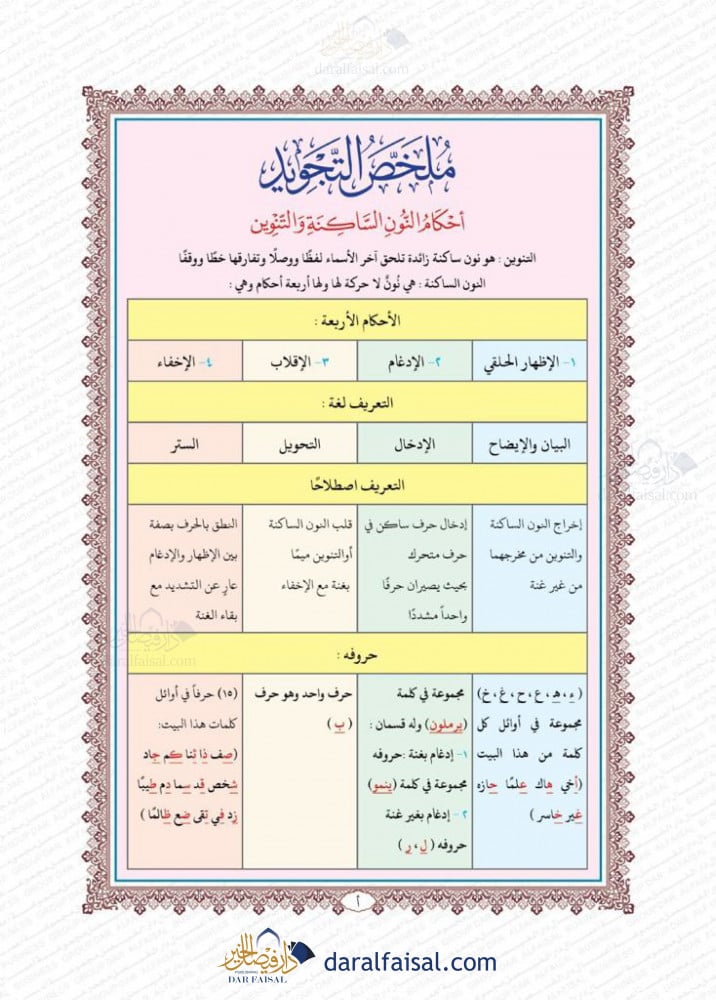 دار فيصل الخير
daralfaisal.com
مُلَخَّصُ التَّجْوِيدِ
أَحْكَامُ النُّونِ السَّاكِنَةِ وَالتَّنْوِينِ
التنوين : هو نون ساكنة زائدة تلحق آخر الأسماء لفظًا ووصلًا وتفارقها خطًا ووقفًا
النون الساكنة : هي نُونٌ لا حركة لها ولها أربعة أحكام وهي :
الأحكام الأربعة :
١- الإظهار الحلقي
٢- الإدغام
٣- الإقلاب
٤- الإخفاء
التعريف لغة :
البيان والإيضاح
الإدخال
التحويل
الستر
التعريف اصطلاحًا
إخراج النون الساكنة
والتنوين من مخرجهما
من غير غنة
إدخال حرف ساكن في
حرف متحرك
بحيث يصيران حرفًا
واحداً مشددًا
قلب النون الساكنة
أوالتنوين ميمًا
بغنة مع الإخفاء
النطق بالحرف بصفة
بين الإظهار والإدغام
عارٍ عن التشديد مع
بقاء الغنة
دار فيصل الخير
daralfaisal.com
دار فيصل الخير
daralfaisal.com
حروفه :
(ء، هـ، ع، ح، غ، خ)
مجموعة في أوائل كل
كلمة من هذا البيت
(أخي هاك علمًا حازه
غير خاسر )
مجموعة في كلمة
(يرملون) وله قسمان :
١- إدغام بغنة :حروفه
مجموعة في كلمة (ينمو)
٢- إدغام بغير غنة
حروفه ( ل، ر )
حرف واحد وهو حرف
( ب )
(١٥) حرفاً في أوائل
كلمات هذا البيت:
(صف ذا ثنا كم جاد
شخص قد سما دم طيبًا
زد في تقى ضع ظالمًا )
٢
دار فيصل الخير
PUBLISHING
DAR FAISAL
daralfaisal.com